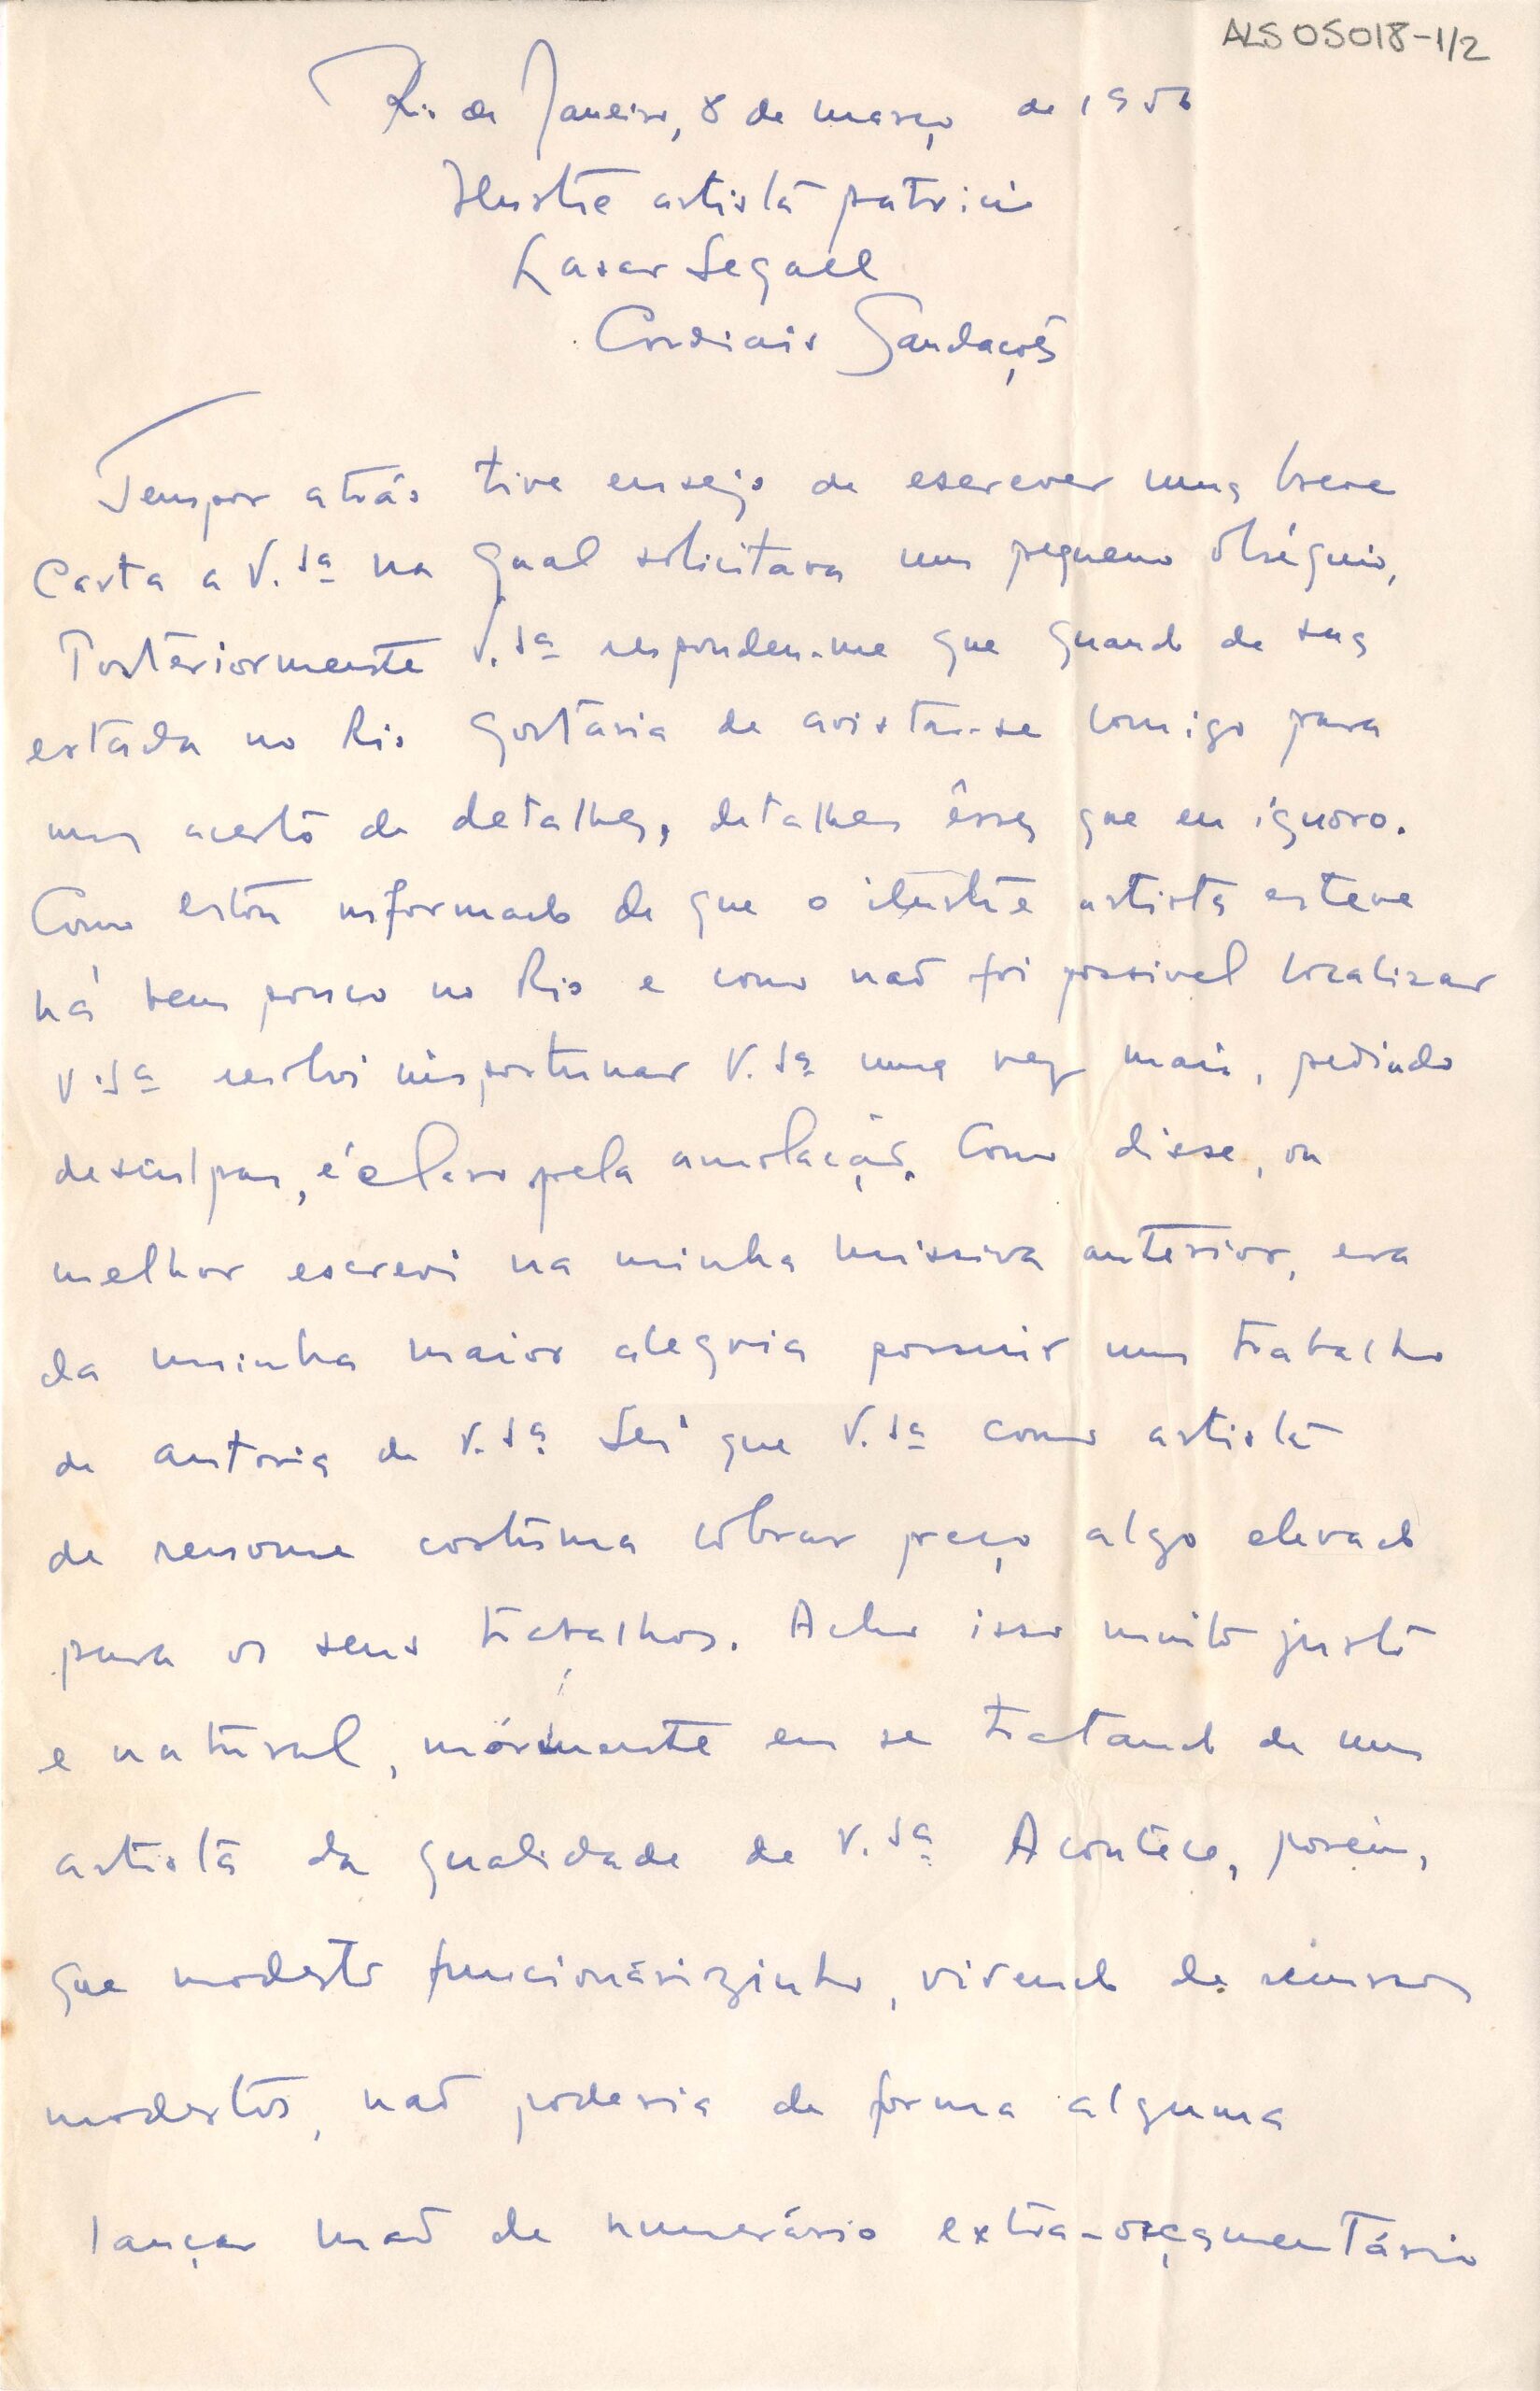 ALS 05018-1/2
Rio de Janeiro, 8 de março de 1956
Ilustre artista patricio
Lasar Segall
Cordiais Saudações
Tempos atrás tive ensejo de escrever uma breve
carta a V. Sª na qual solicitava um pequeno obséquio,
Posteriormente V. Sª respondeu-me que quando de sua
estada no Rio gostaria de avistar-se comigo para
um acerto de detalhes, detalhes êsses que eu ignoro.
Como estou informado de que o ilustre artista esteve
há bem pouco no Rio e como não foi possivel localizar
V. Sª resolvi importunar V. Sª uma vez mais, pedindo
desculpas, é claro pela amolação. Como disse, ou
melhor escrevi na minha missiva anterior, era
da minha maior alegria possuir um trabalho
de autoria de V. Sª. Sei que V. Sª como artista
de renome costuma cobrar preço algo elevado
para os seus trabalhos. Acho isso muito justo
e natural, mórmente em se tratando de um
artista da qualidade de V. Sª. Acontece, porém,
que modesto funcionáriozinho, vivendo de
modestos, não poderia de forma alguma
lançar mão de numerário extra-orçamentário